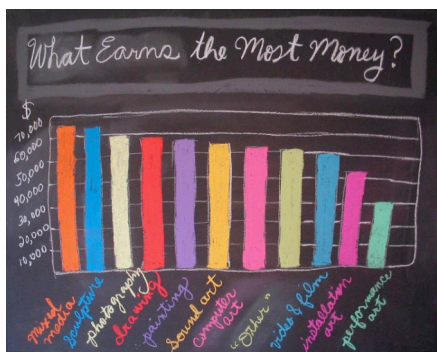 What Earns the Most Money?
$
70,000
60,000
50,000
40,000
30,000
20,000
10,000
mixed
media
sculpture
photography
drawing
painting
sound art
computer
art
"Other"
video & film
installation
art
performance
art